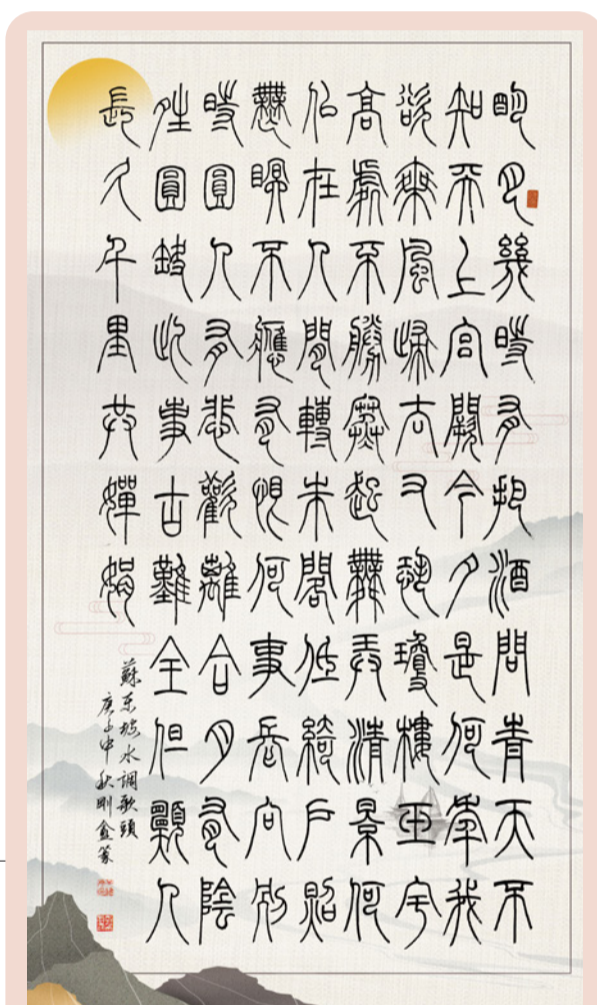 明月幾時有把酒問青天不
知天上宮闕今夕是何年我
欲乘風歸去又恐瓊樓玉宇
高處不勝寒起舞弄清景何
似在人間轉朱閣低綺戶照
無眠不應有恨何事長向別
時圓人有悲歡離合月有陰
晴圓缺此事古難全但願人
長久千里共嬋娟
蘇東坡水調歌頭
庚子中秋剛篆